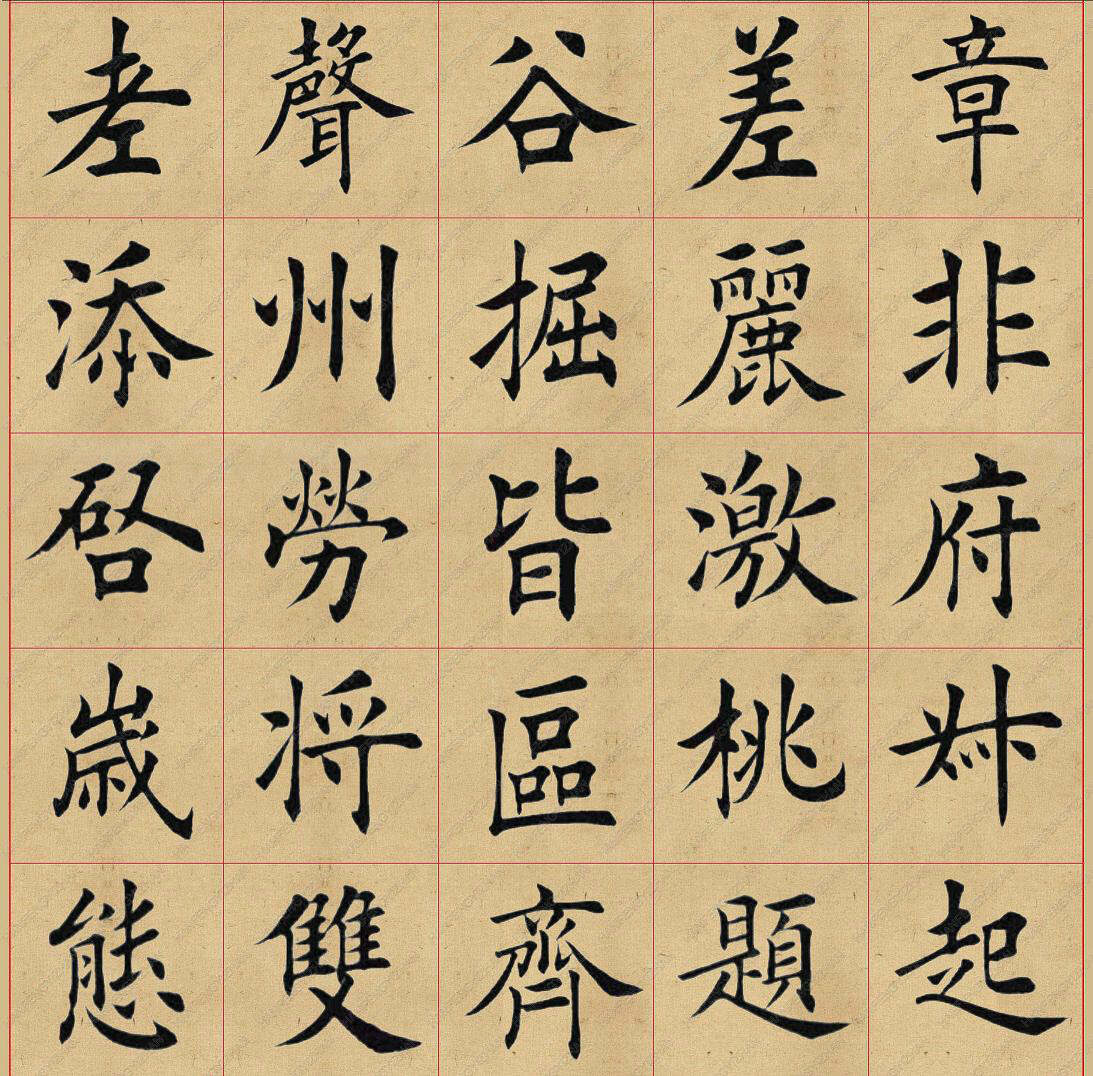 聲谷差章
添州掘麗非
啓勞皆激府
歲将區桃
態雙齊題起